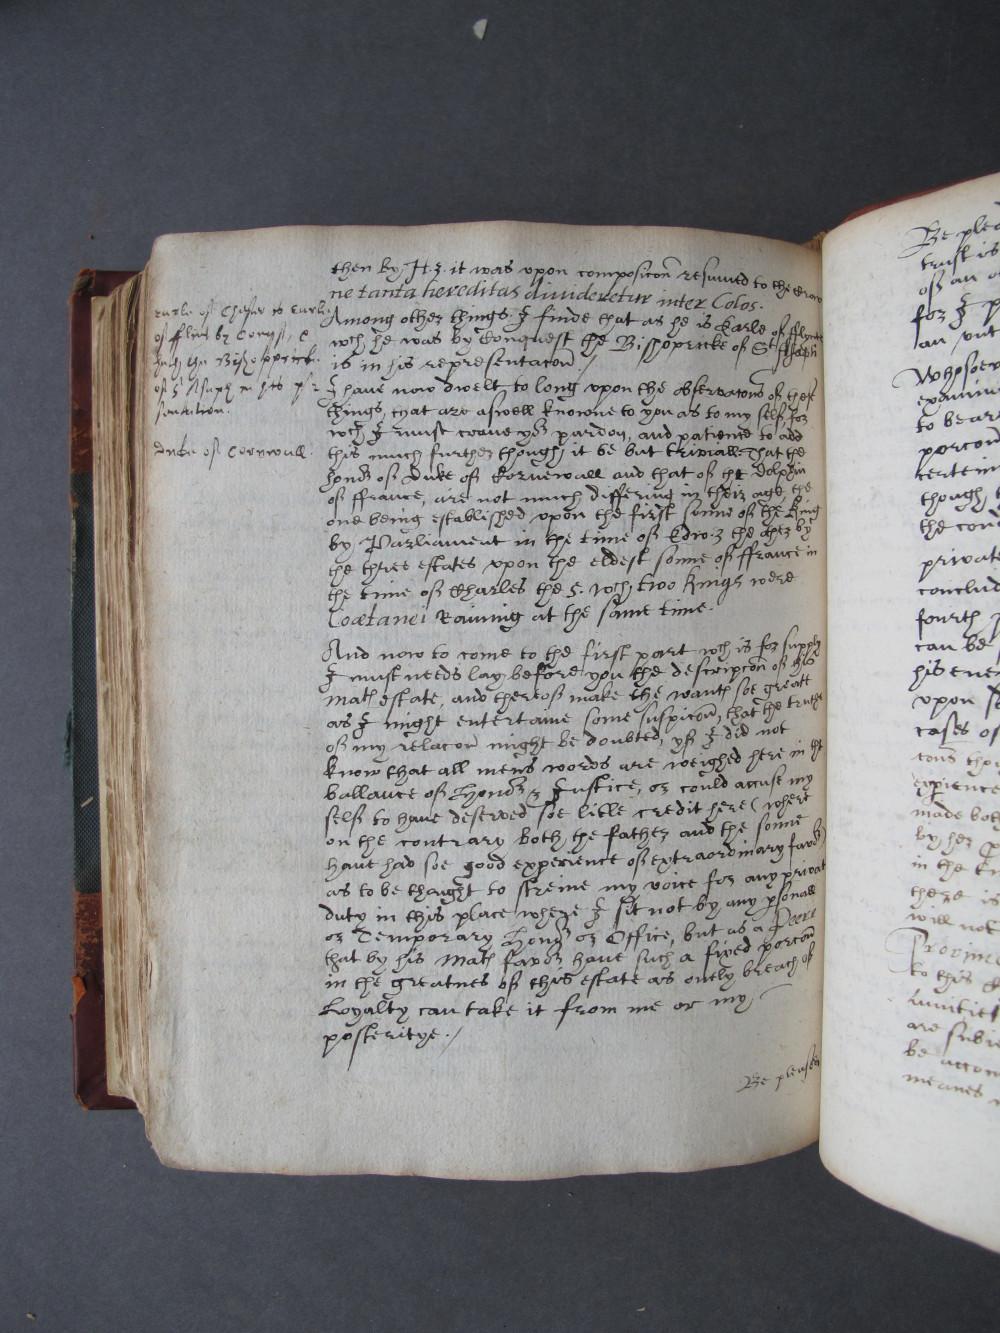 then by H. 3. it was vpon composicon resumed to the Crown
ne tanta hereditas divideretur inter Colos.
Among other things I finde that as he is Earle of fflynte
wch he was by Conquest the Bisshopricke of St Assaph
is in his representacon./
I have now dwelt to long vpon the observacons of these
things, that are aswell knowne to you as to my self, for
wch I must crave yor pardon, and patience to add
this much further though it be but triviall. That the
honor of Duke of Cornewall and that of the Dolphin
of ffrance, are not much differing in their age, the
one being established vpon the first sonne of the King
by Parliament in the time of Edw. 3 the other by
the three estates vpon the eldest sonne of ffrance in
the time of Charles the 5. wch two Kings were
Coætanei Raining at the same time.
And now to come to the first part wch is for supply
I must needs lay before you the descripcon of his
Mats estate, and therof make the wants soe greate
as I might entertaine some suspicon, that the truthe
of my relacon might be doubted, yf I did not
know that all mens words are weighed here in the
ballance of Honor & Justice, or could accuse my
self to have deserved soe litle credit here (where
on the contrary both the father and the sonne
have had soe good experience of extraordinary favor)
as to be thought to streine my voice for any privat
duty in this place where I sit not by any psonall
or Temporary Honor or Office, but as a Peere
that by his Mats favor have such a fixed porcon
in the greatnes of this estate as onely breach of
Loyalty can take it from me or my
posteritye./
Be pleased
Earle of Chester to Earle
of fflint by Conqst, &
hath the Bishoppricke
of St Asaph in his pre
sentation.
Duke of Cornwall.
Be plea
trust is
of an
for I
an
Whosoev
examin
to beare
porcon
certein
though
the con
private
conclud
fourth
can be
his ene
vpon
cases of
cons tho
expience
made both
by her
in the
there is
will not
Province
to this
are subie
be accom
means